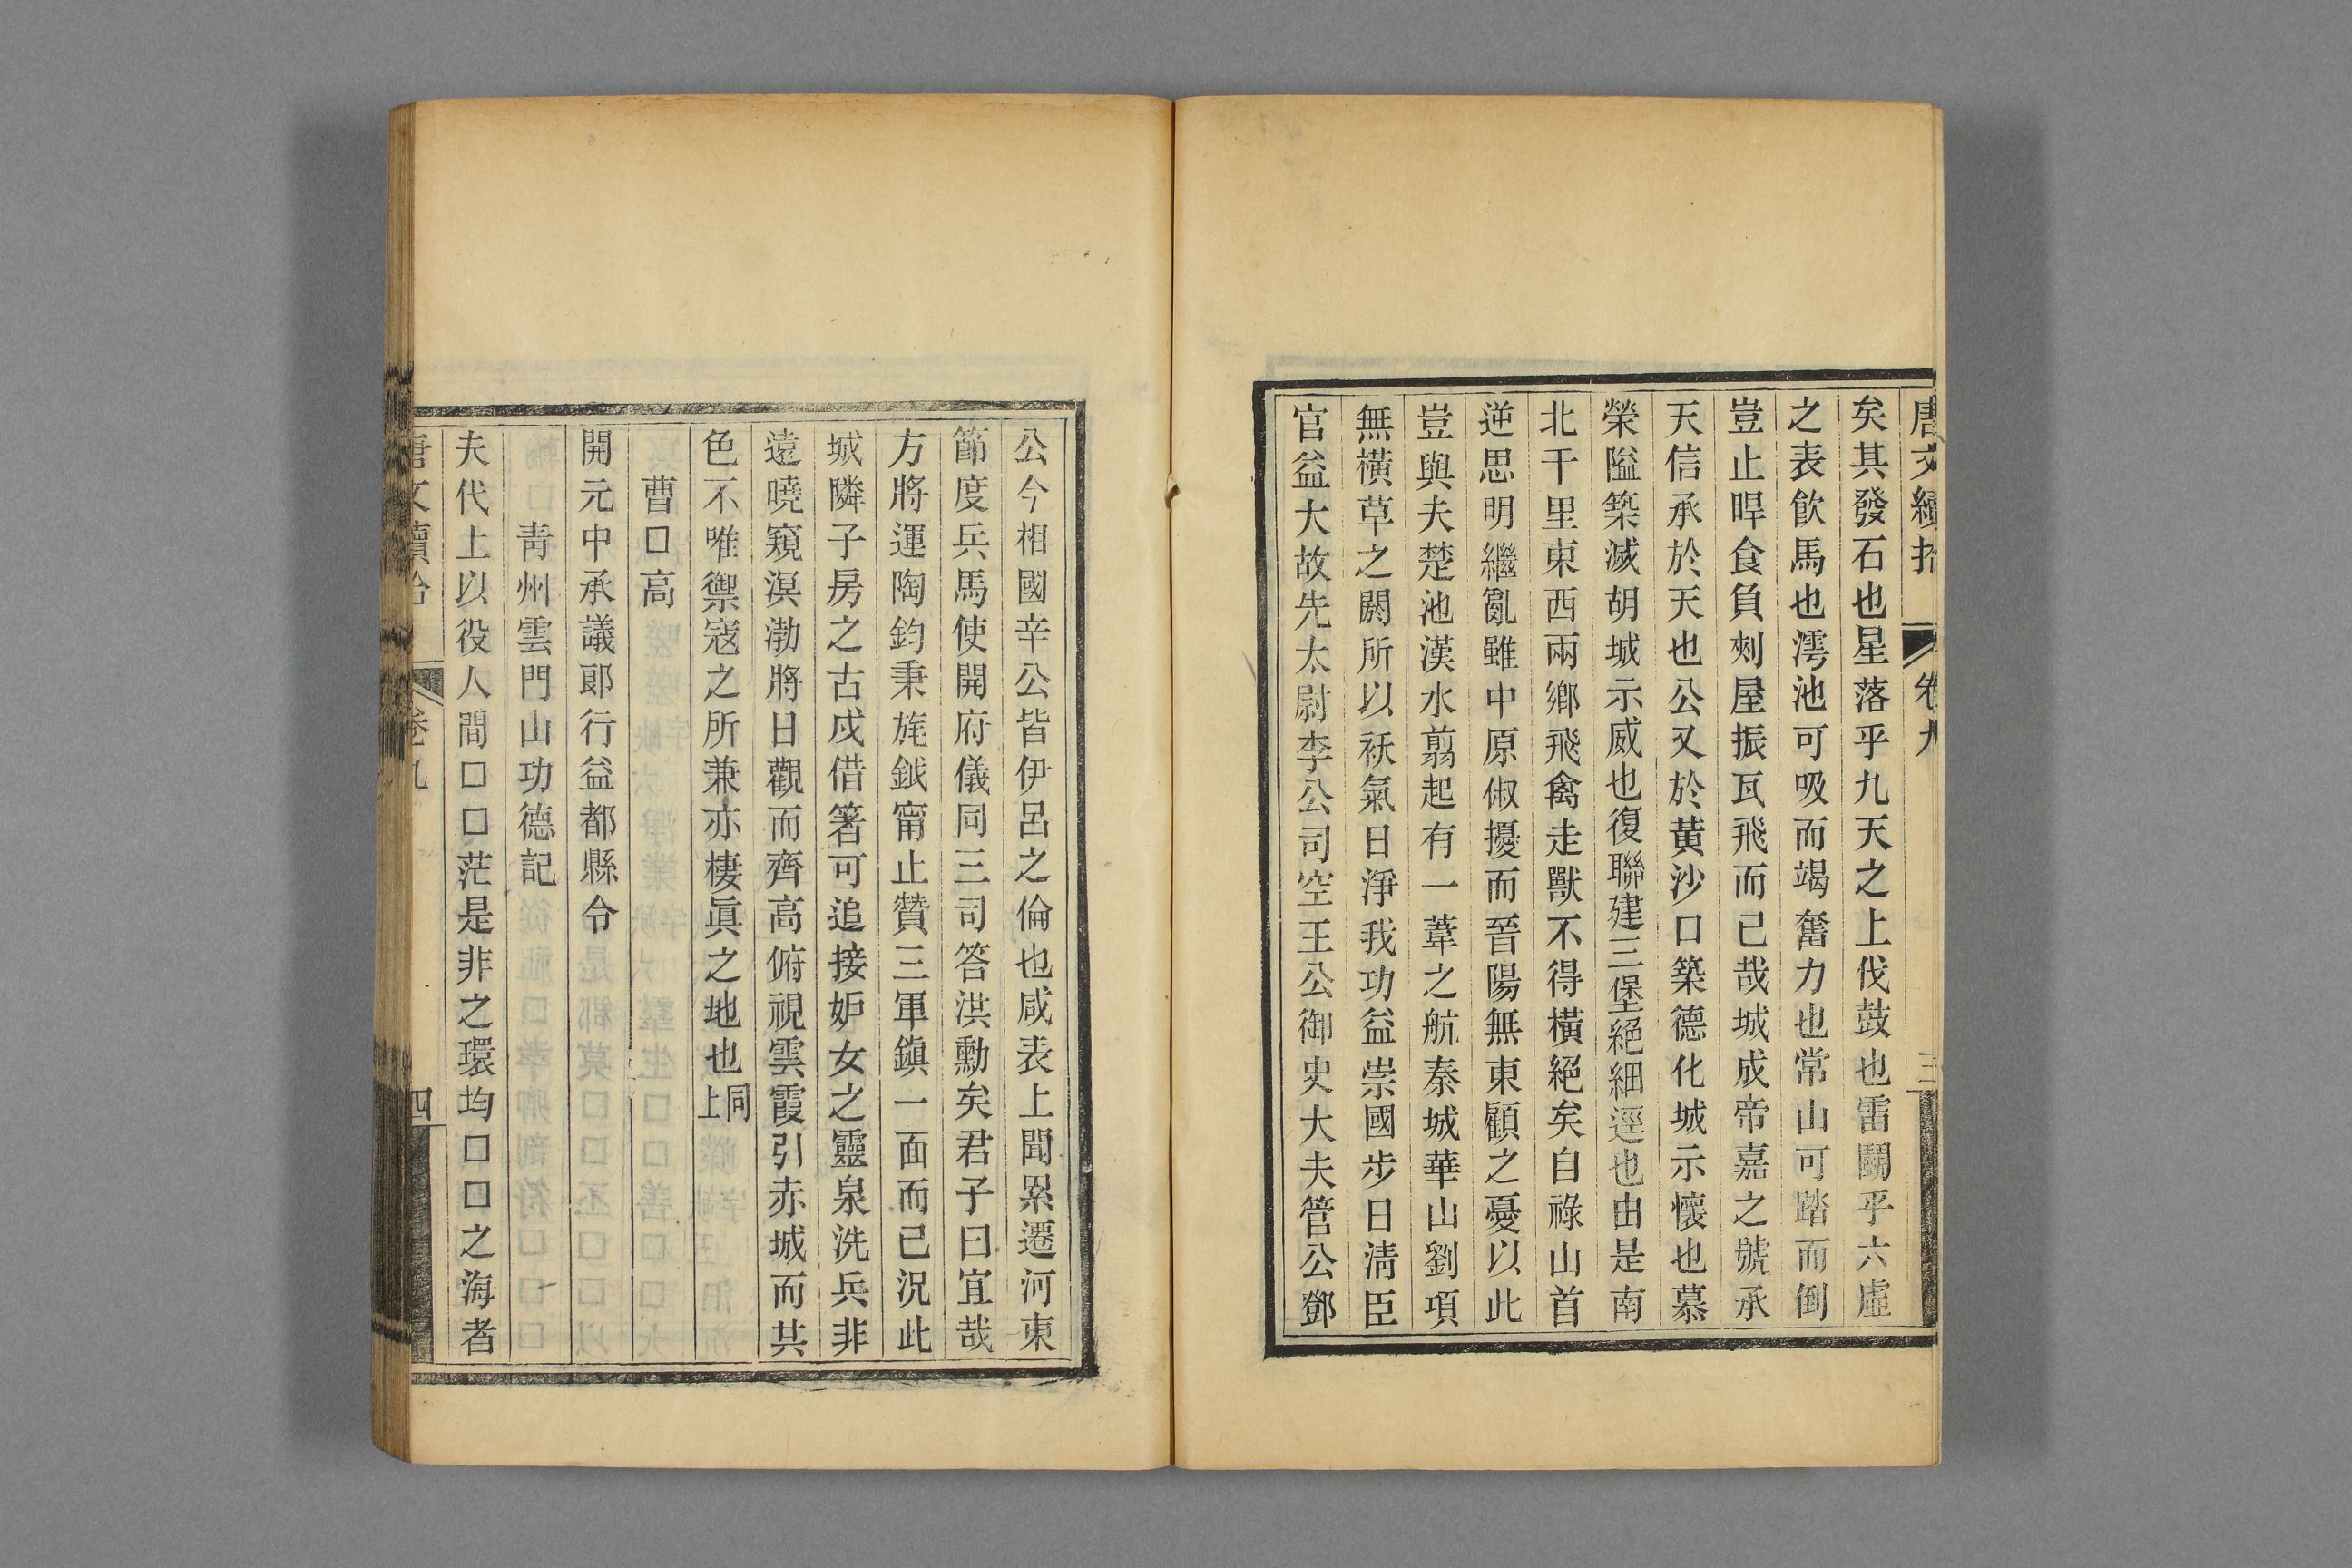 唐文續拾 卷九 三
矣其發石也星落乎九天之上伐鼓也雷鬭乎六虛
之表飲馬也滹池可吸而竭奮力也常山可踏而倒
豈止睅食負剡屋振瓦飛而已哉城成帝嘉之號承
天信承於天也公又於黃沙口築德化城示懷也慕
榮隘築滅胡城示威也復聯建三堡絕細逕也由是南
北干里東西兩鄉飛禽走獸不得橫絕矣自祿山首
逆思明繼亂雖中原俶擾而晉陽無東顧之憂以此
豈與夫楚池漢水翦起有一葦之航秦城華山劉項
無橫草之閼所以祅氣日淨我功益崇國步日淸臣
官益大故先太尉李公司空王公御史大夫管公鄧
公今相國辛公皆伊呂之倫也咸表上聞累遷河東
節度兵馬使開府儀同三司答洪勳矣君子曰宜哉
方將運陶鈞秉旄鉞甯止贊三軍鎭一面而已況此
城隣子房之古戍借箸可追接妒女之靈泉洗兵非
遠曉窺溟渤將日觀而齊高俯視雲霞引赤城而共
色不唯禦寇之所兼亦棲眞之地也同上
曹口高
開元中承議郞行益都縣令
靑州雲門山功德記
夫代上以役人間口口茫是非之環均口口之海者
唐文續拾 卷九 四